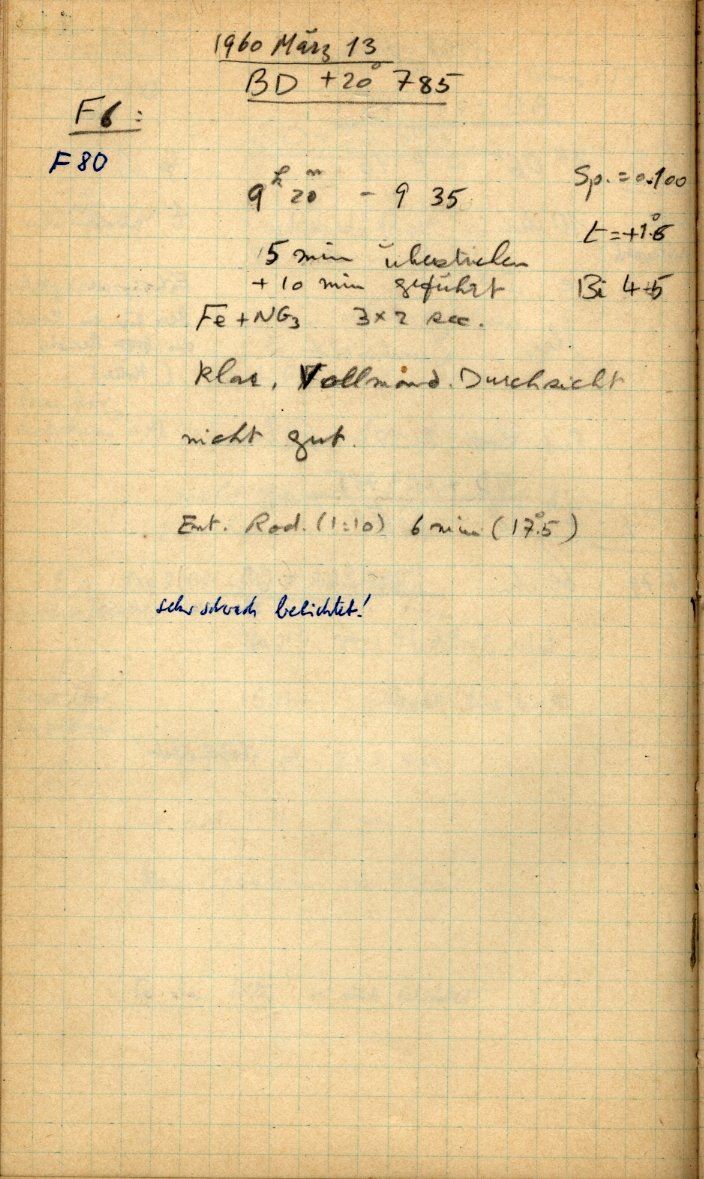 1960 März 13
BD +20° 785
F6:
F80
9ʰ 20ᵐ - 9 35
Sp. = 0.100
t = +1.°8
5 min überstrichen
+ 10 min geführt
Bi 4-5
Fe + NG₃ 3×2 sec.
klar, Vollmond. Durchsicht
nicht gut.
Ent. Rod. (1:10) 6 min (17.°5)
sehr schwach belichtet!